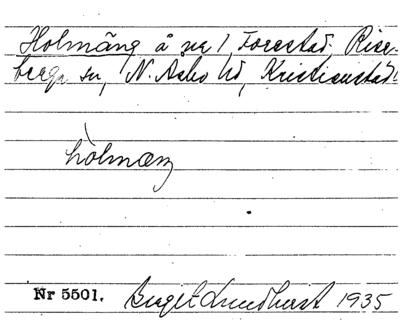 Holmäng å nr 1 Forestad, Rise-
berga sn, N. Åsbo hd, Kristianstads
hòlmæŋ
Nr 5501. Birgit Lundkvist 1935